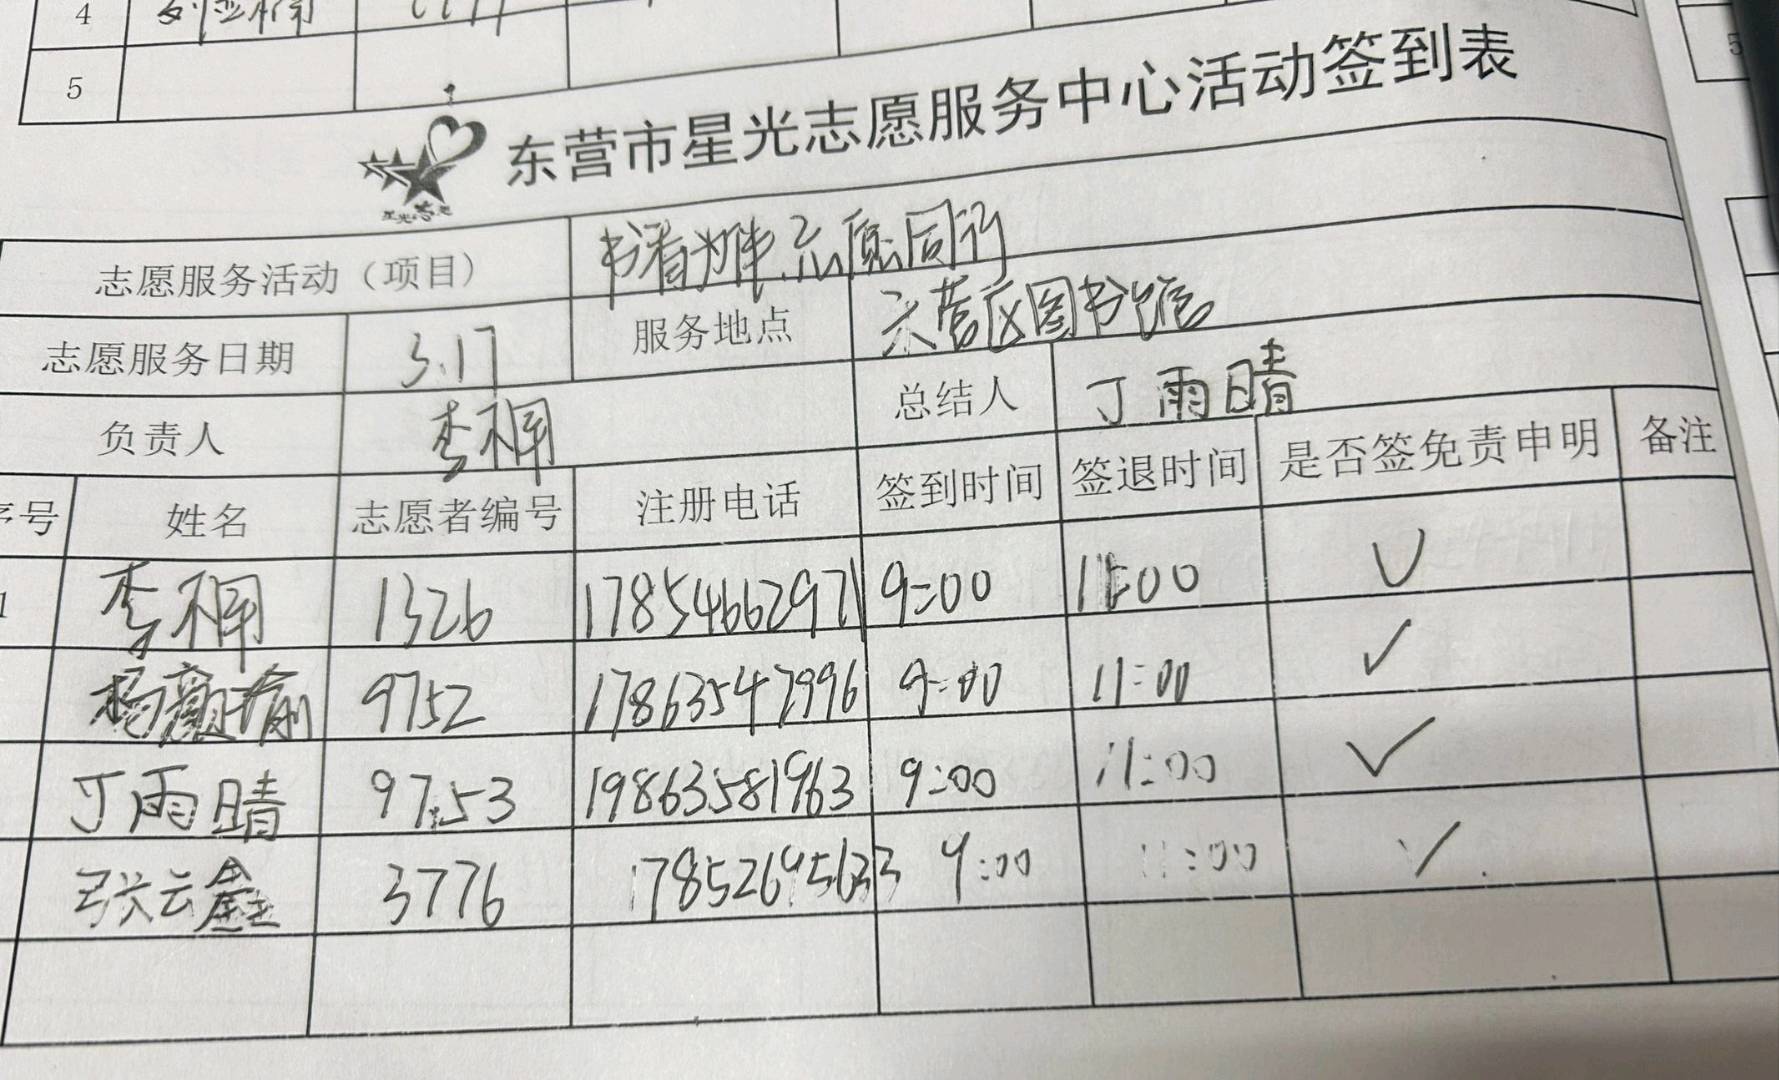 4
5
5
东营市星光志愿服务中心活动签到表
星光志愿
志愿服务活动（项目） 书香为伴 志愿同行
志愿服务日期 3.17 服务地点 东营区图书馆
负责人 李樨 总结人 丁雨晴
序号 姓名 志愿者编号 注册电话 签到时间 签退时间 是否签免责申明 备注
1 李樨 1326 17854662971 9:00 11:00 ✓
杨颜瑜 9752 17863547996 9:00 11:00 ✓
丁雨晴 9753 19863581963 9:00 11:00 ✓
张云鑫 3776 17852695633 9:00 11:00 ✓